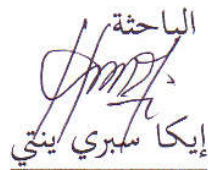 الباحثة
إيكا سبري ينتي